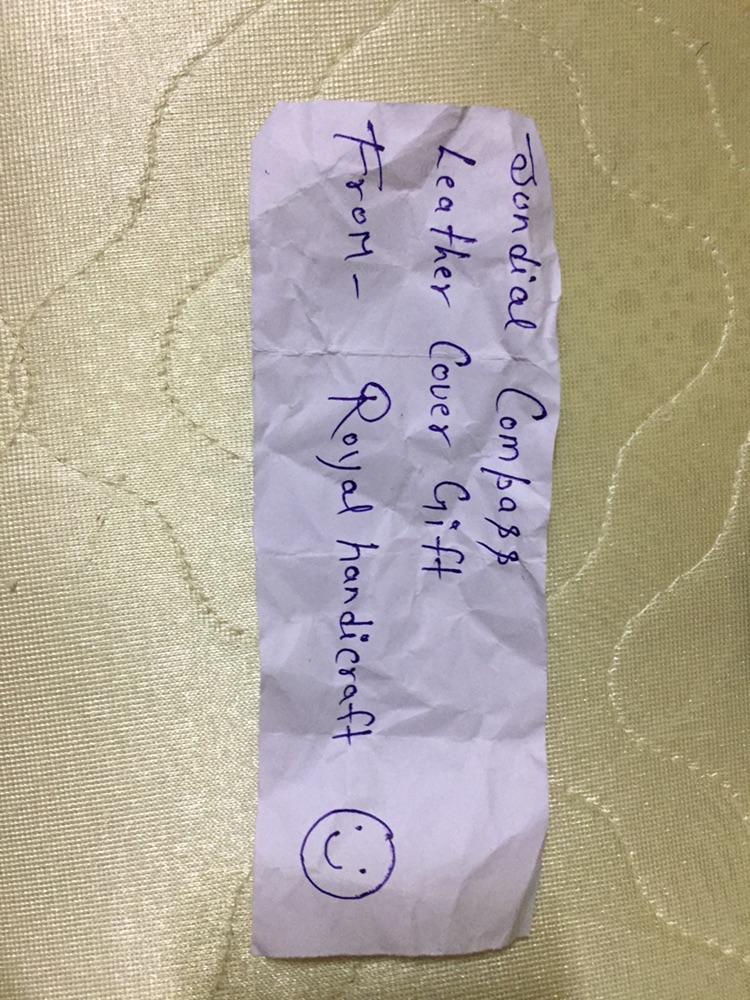 Sundial Compass
Leather Cover Gift
From - Royal handicraft